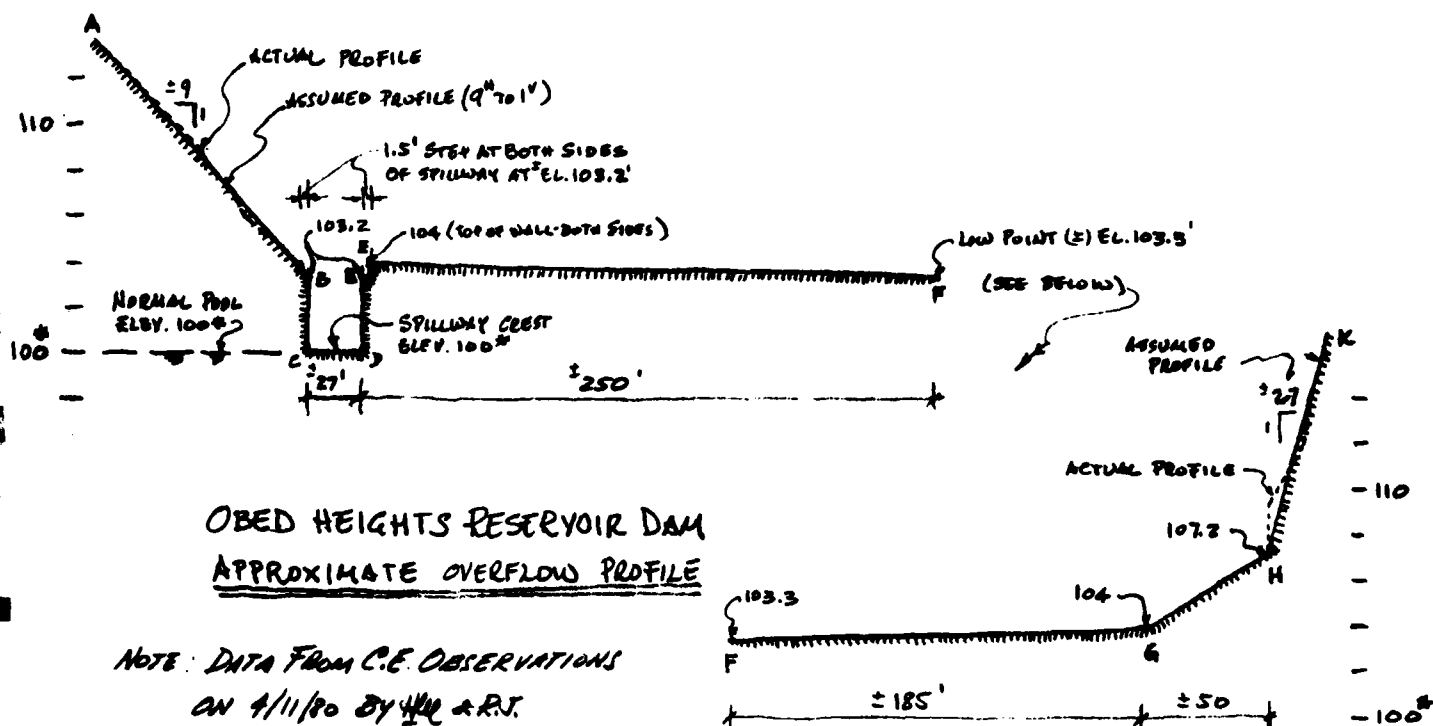 A
ACTUAL PROFILE
±9
1
ASSUMED PROFILE (9ᴴ TO 1ⱽ)
110
1.5' STEP AT BOTH SIDES
OF SPILLWAY AT ± EL. 103.2'
103.2
104 (TOP OF WALL-BOTH SIDES)
E
LOW POINT (±) EL. 103.3'
B
F
(SEE BELOW)
NORMAL POOL
ELEV. 100*
SPILLWAY CREST
ELEV. 100*
100*
C
D
±27'
±250'
K
ASSUMED
PROFILE
±27
1
ACTUAL PROFILE
110
107.2
H
OBED HEIGHTS RESERVOIR DAM
APPROXIMATE OVERFLOW PROFILE
103.3
104
F
G
NOTE: DATA FROM C.E. OBSERVATIONS
ON 4/11/80 BY & R.J.
±185'
±50
100*